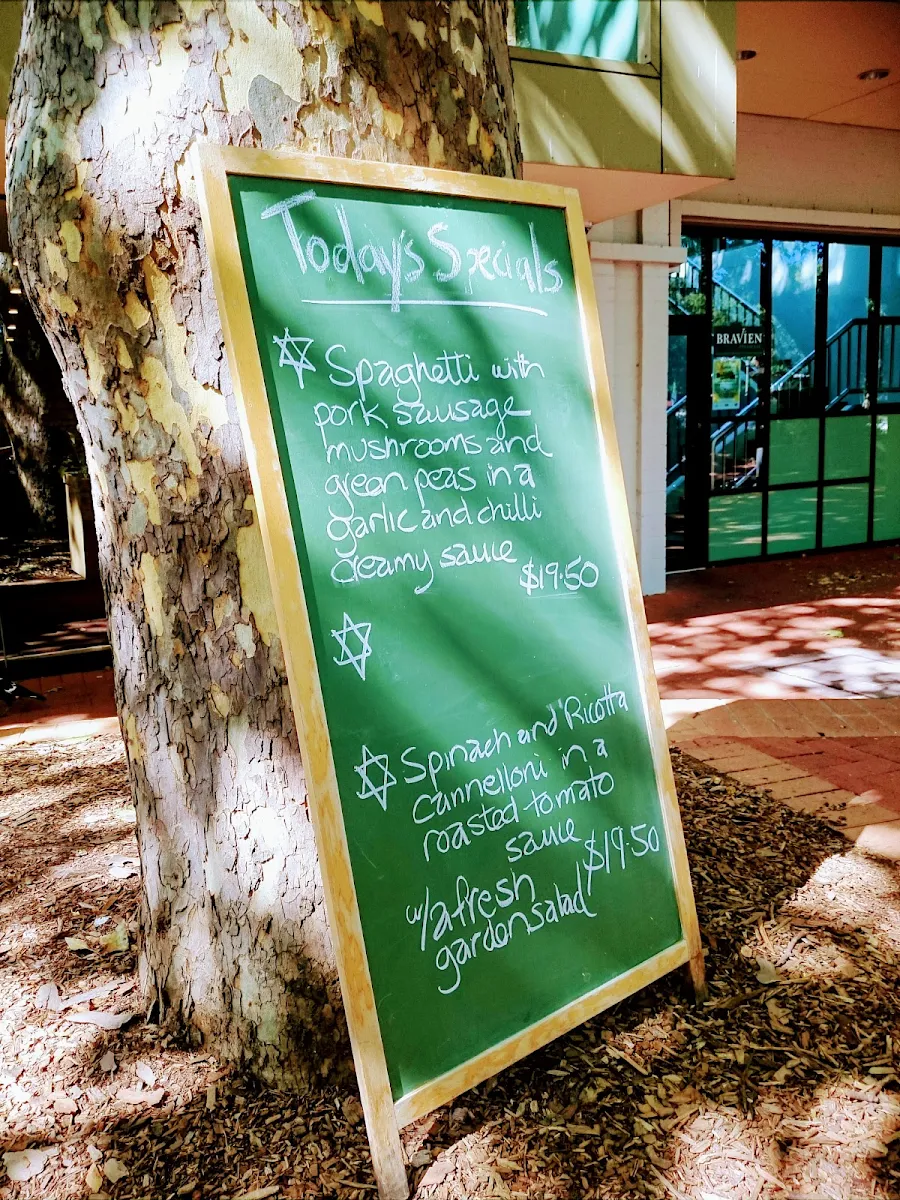 Today's Specials
Spaghetti with
pork sausage
mushrooms and
green peas in a
garlic and chilli
creamy sauce
$19.50
Spinach and Ricotta
Cannelloni in a
roasted tomato
sauce
$19.50
w/a fresh
garden salad
BRAVIEN